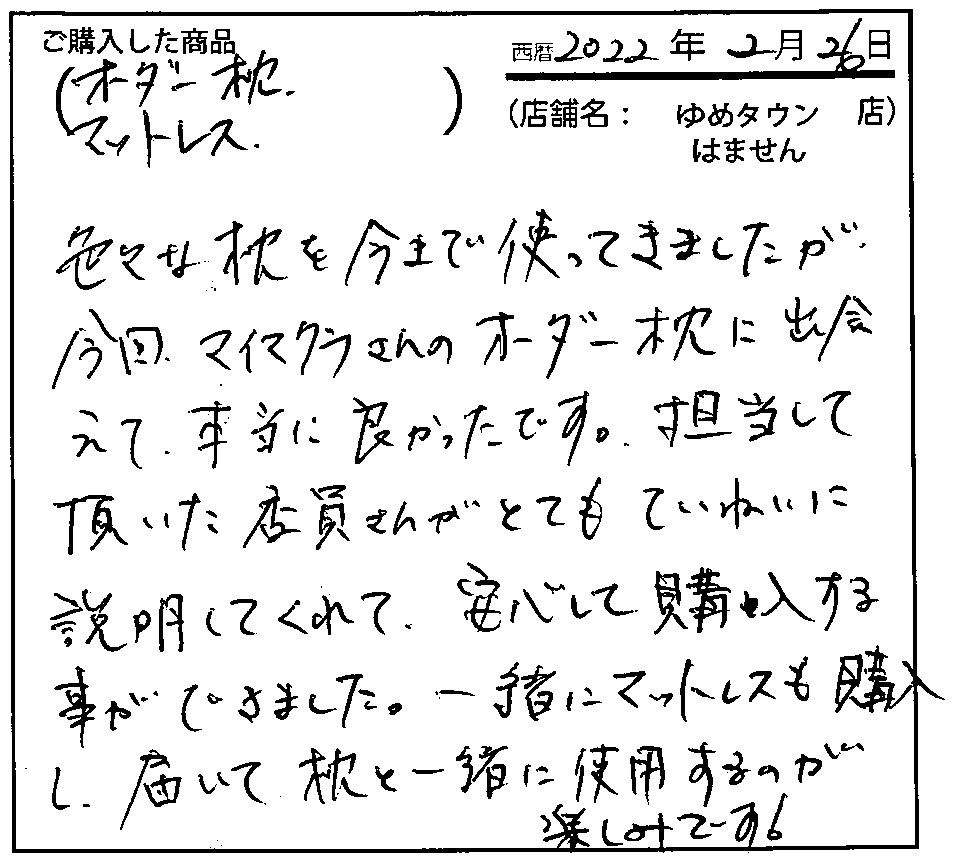 ご購入した商品
西暦2022年 2月26日
(オーダー枕、
マットレス、)
(店舗名: ゆめタウン 店)
はません
色々な枕を今まで使ってきましたが、
今回、マイマクラさんのオーダー枕に出会
えて、本当に良かったです。担当して
頂いた店員さんがとてもていねいに
説明してくれて、安心して購入する
事ができました。一緒にマットレスも購入
し、届いて枕と一緒に使用するのが
楽しみです!